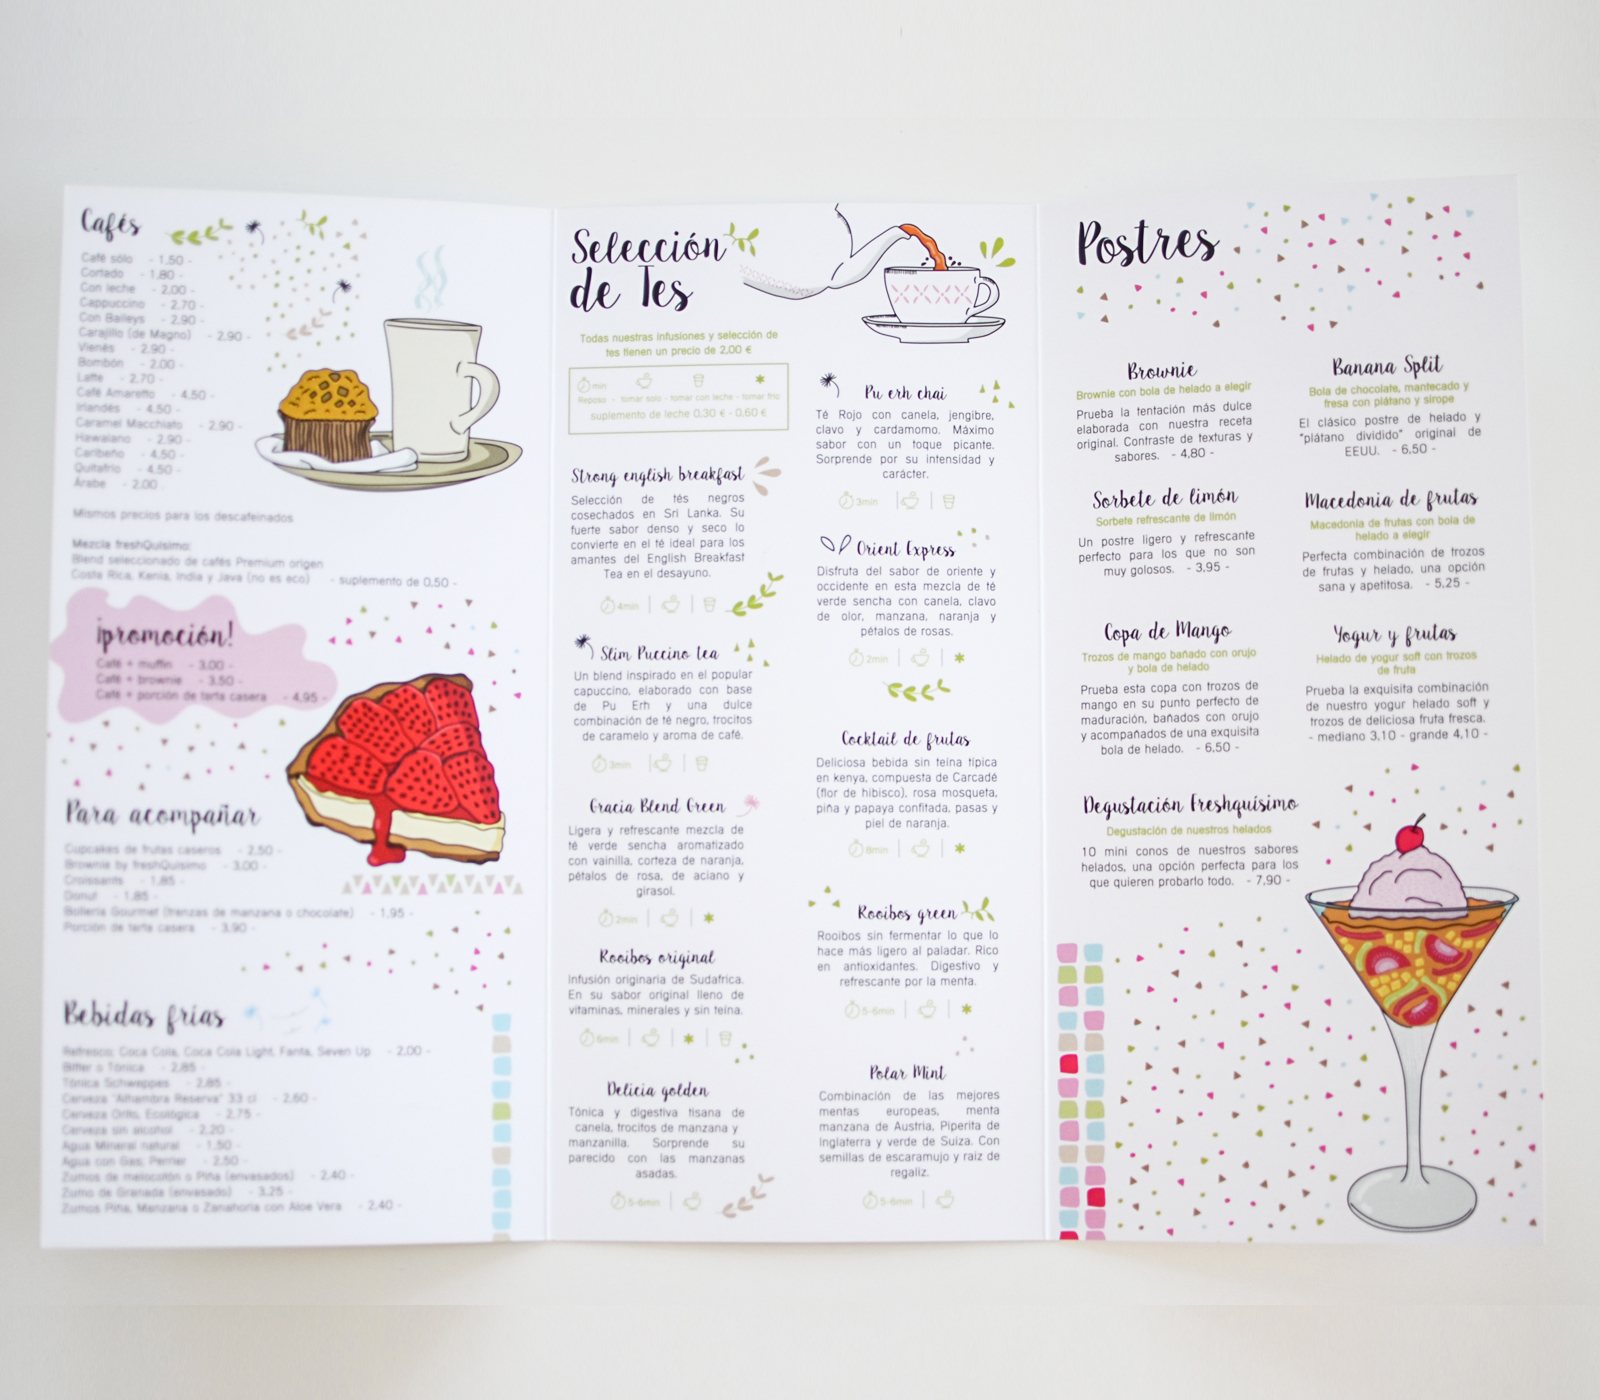 Cafés
Café sólo - 1,50 -
Cortado - 1,80 -
Con leche - 2,00 -
Cappuccino - 2,70 -
Con Baileys - 2,90 -
Carajillo (de Magno) - 2,90 -
Vienés - 2,90 -
Bombón - 2,00 -
Latte - 2,70 -
Café Amaretto - 4,50 -
Irlandés - 4,50 -
Caramel Macchiato - 2,90 -
Hawaiano - 2,90 -
Caribeño - 4,50 -
Quitafrío - 4,50 -
Árabe - 2,00
Mismos precios para los descafeinados
Mezcla freshQuísimo:
Blend seleccionado de cafés Premium origen
Costa Rica, Kenia, India y Java (no es eco) - suplemento de 0,50 -
¡promoción!
Café + muffin - 3,00 -
Café + brownie - 3,50 -
Café + porción de tarta casera - 4,95 -
Para acompañar
Cupcakes de frutas caseros - 2,50 -
Brownie by freshQuísimo - 3,00 -
Croissants - 1,85 -
Donut - 1,85 -
Bollería Gourmet (trenzas de manzana o chocolate) - 1,95 -
Porción de tarta casera - 3,90 -
Bebidas frías
Refresco: Coca Cola, Coca Cola Light, Fanta, Seven Up - 2,00 -
Bitter o Tónica - 2,85 -
Tónica Schweppes - 2,85 -
Cerveza "Alhambra Reserva" 33 cl - 2,60 -
Cerveza Orito, Ecológica - 2,75 -
Cerveza sin alcohol - 2,20 -
Agua Mineral natural - 1,50 -
Agua con Gas: Perrier - 2,50 -
Zumos de melocotón o Piña (envasados) - 2,40 -
Zumo de Granada (envasado) - 3,25 -
Zumos Piña, Manzana o Zanahoria con Aloe Vera - 2,40 -
Selección
de Tes
Todas nuestras infusiones y selección de
tes tienen un precio de 2,00 €
min
Reposo - tomar solo - tomar con leche - tomar frio
suplemento de leche 0,30 € - 0,60 €
Strong english breakfast
Selección de tés negros
cosechados en Sri Lanka. Su
fuerte sabor denso y seco lo
convierte en el té ideal para los
amantes del English Breakfast
Tea en el desayuno.
4min
Slim Puccino tea
Un blend inspirado en el popular
capuccino, elaborado con base
de Pu Erh y una dulce
combinación de té negro, trocitos
de caramelo y aroma de café.
3min
Gracia Blend Green
Ligera y refrescante mezcla de
té verde sencha aromatizado
con vainilla, corteza de naranja,
pétalos de rosa, de aciano y
girasol.
2min
Rooibos original
Infusión originaria de Sudafrica.
En su sabor original lleno de
vitaminas, minerales y sin teína.
6min
Delicia golden
Tónica y digestiva tisana de
canela, trocitos de manzana y
manzanilla. Sorprende su
parecido con las manzanas
asadas.
5-6min
Pu erh chai
Té Rojo con canela, jengibre,
clavo y cardamomo. Máximo
sabor con un toque picante.
Sorprende por su intensidad y
carácter.
3min
Orient Express
Disfruta del sabor de oriente y
occidente en esta mezcla de té
verde sencha con canela, clavo
de olor, manzana, naranja y
pétalos de rosas.
2min
Cocktail de frutas
Deliciosa bebida sin teína típica
en kenya, compuesta de Carcadé
(flor de hibisco), rosa mosqueta,
piña y papaya confitada, pasas y
piel de naranja.
8min
Rooibos green
Rooibos sin fermentar lo que lo
hace más ligero al paladar. Rico
en antioxidantes. Digestivo y
refrescante por la menta.
5-6min
Polar Mint
Combinación de las mejores
mentas europeas, menta
manzana de Austria, Piperita de
Inglaterra y verde de Suiza. Con
semillas de escaramujo y raíz de
regaliz.
5-6min
Postres
Brownie
Brownie con bola de helado a elegir
Prueba la tentación más dulce
elaborada con nuestra receta
original. Contraste de texturas y
sabores. - 4,80 -
Sorbete de limón
Sorbete refrescante de limón
Un postre ligero y refrescante
perfecto para los que no son
muy golosos. - 3,95 -
Copa de Mango
Trozos de mango bañado con orujo
y bola de helado
Prueba esta copa con trozos de
mango en su punto perfecto de
maduración, bañados con orujo
y acompañados de una exquisita
bola de helado. - 6,50 -
Degustación Freshquísimo
Degustación de nuestros helados
10 mini conos de nuestros sabores
helados, una opción perfecta para los
que quieren probarlo todo. - 7,90 -
Banana Split
Bola de chocolate, mantecado y
fresa con plátano y sirope
El clásico postre de helado y
"plátano dividido" original de
EEUU. - 6,50 -
Macedonia de frutas
Macedonia de frutas con bola de
helado a elegir
Perfecta combinación de trozos
de frutas y helado, una opción
sana y apetitosa. - 5,25 -
Yogur y frutas
Helado de yogur soft con trozos
de fruta
Prueba la exquisita combinación
de nuestro yogur helado soft y
trozos de deliciosa fruta fresca.
- mediano 3,10 - grande 4,10 -